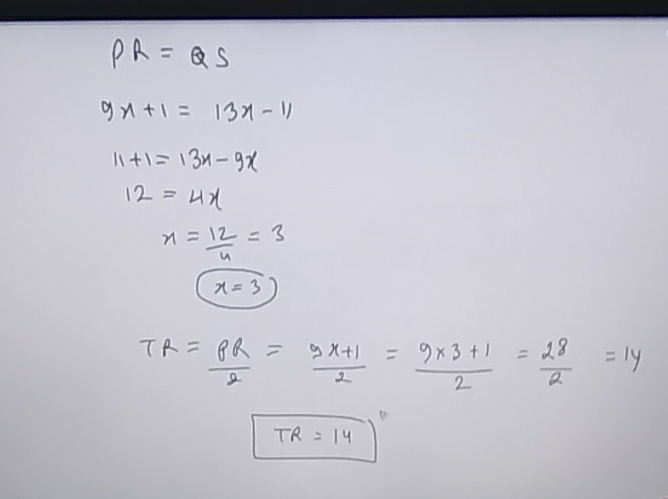 PR = QS
9x+1 = 13x-11
11+1=13x-9x
12 = 4x
x = 12/4 = 3
x=3
TR = PR/2 = 9x+1/2 = 9×3+1/2 = 28/2 = 14
TR = 14